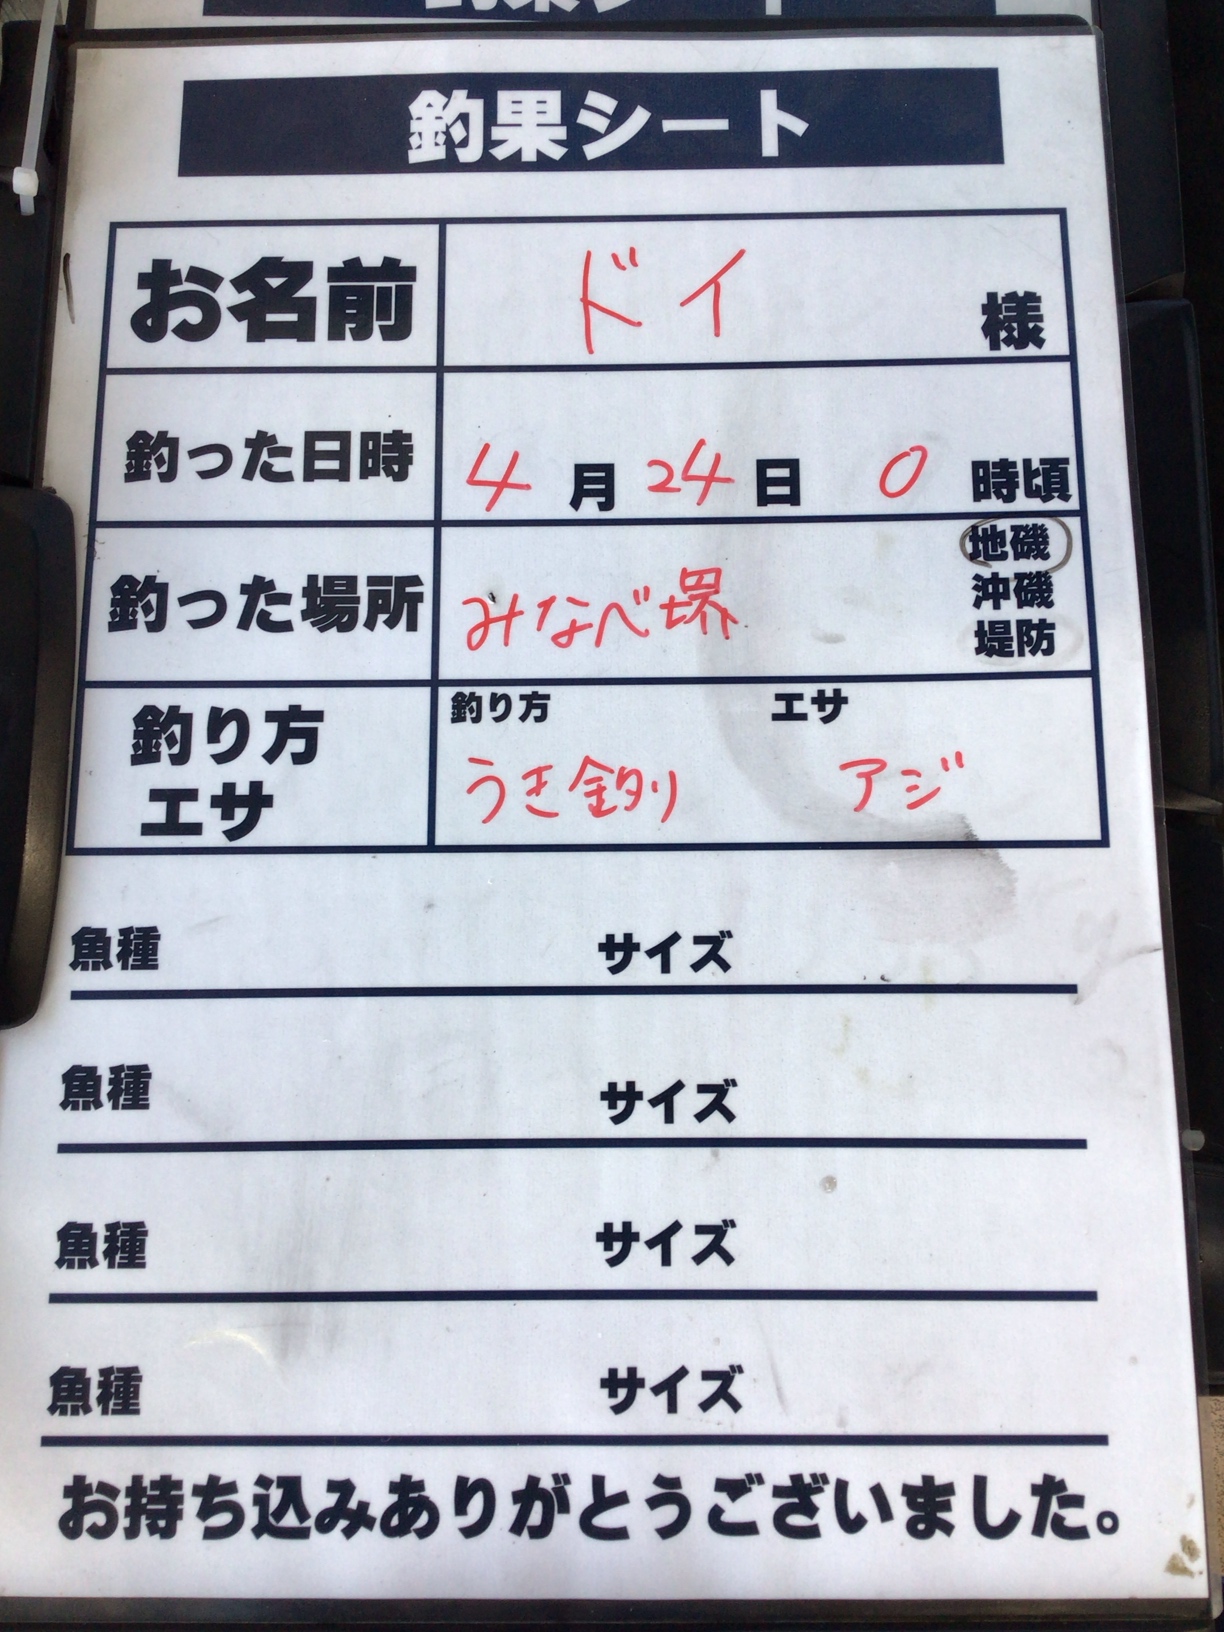 釣果シート
お名前 ドイ 様
釣った日時 4月24日 0時頃
釣った場所 みなべ堺 地磯
沖磯
堤防
釣り方 エサ 釣り方 エサ
うき釣り アジ
魚種 サイズ
魚種 サイズ
魚種 サイズ
魚種 サイズ
お持ち込みありがとうございました。